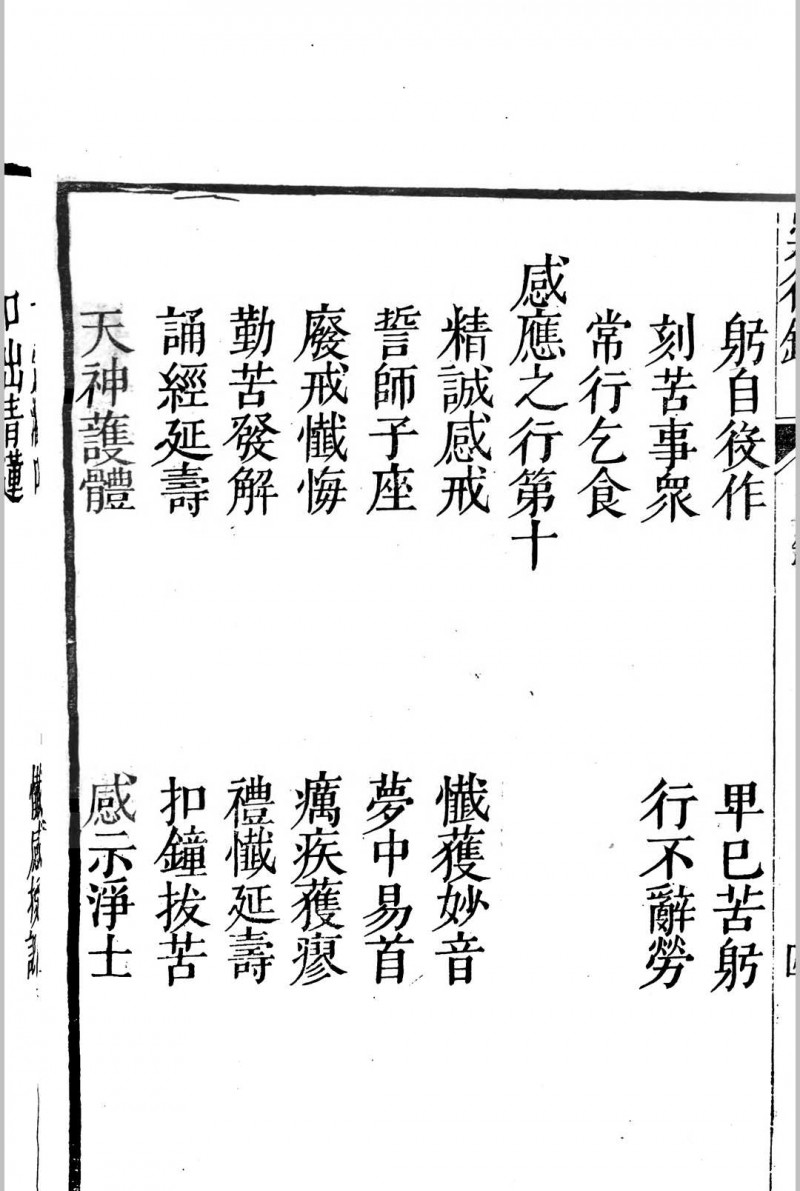 躬自役作　早已苦躬
刻苦事衆　行不辭勞
常行乞食
感應之行第十
精誠感戒　懺獲妙音
誓師子座　夢中易首
廢戒懺悔　癘疾獲瘳
勤苦發解　禮懺延壽
誦經延壽　扣鐘拔苦
天神護體　感示淨土
口出青蓮